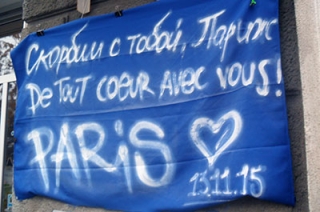 Скорбим с тобой, Париж
De tout coeur avec vous!
PARiS
13.11.15